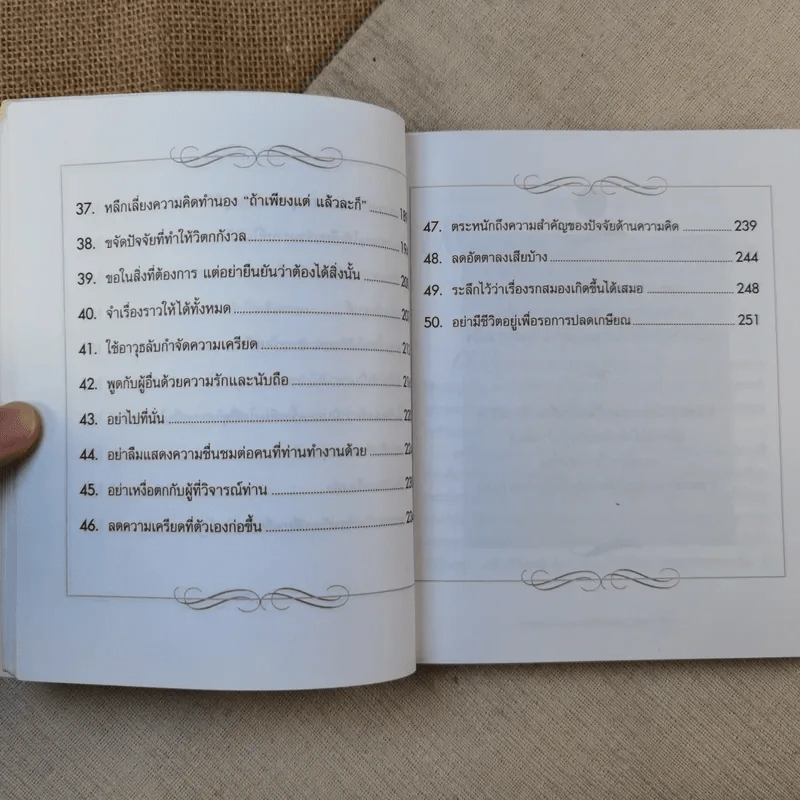 37. หลีกเลี่ยงความคิดทำนอง “ถ้าเพียงแต่ แล้วละก็”
38. ขจัดปัจจัยที่ทำให้วิตกกังวล
39. ขอในสิ่งที่ต้องการ แต่อย่ายืนยันว่าต้องได้สิ่งนั้น
40. จำเรื่องราวให้ได้ทั้งหมด
41. ใช้อาวุธลับกำจัดความเครียด
42. พูดกับผู้อื่นด้วยความรักและนับถือ
43. อย่าไปที่นั่น
44. อย่าลืมแสดงความชื่นชมต่อคนที่ท่านทำงานด้วย
45. อย่าเหงื่อตกกับผู้ที่วิจารณ์ท่าน
46. ลดความเครียดที่ตัวเองก่อขึ้น
47. ตระหนักถึงความสำคัญของปัจจัยด้านความคิด 239
48. ลดอัตตาลงเสียบ้าง 244
49. ระลึกไว้ว่าเรื่องรกสมองเกิดขึ้นได้เสมอ 248
50. อย่ามีชีวิตอยู่เพื่อรอการปลดเกษียณ 251